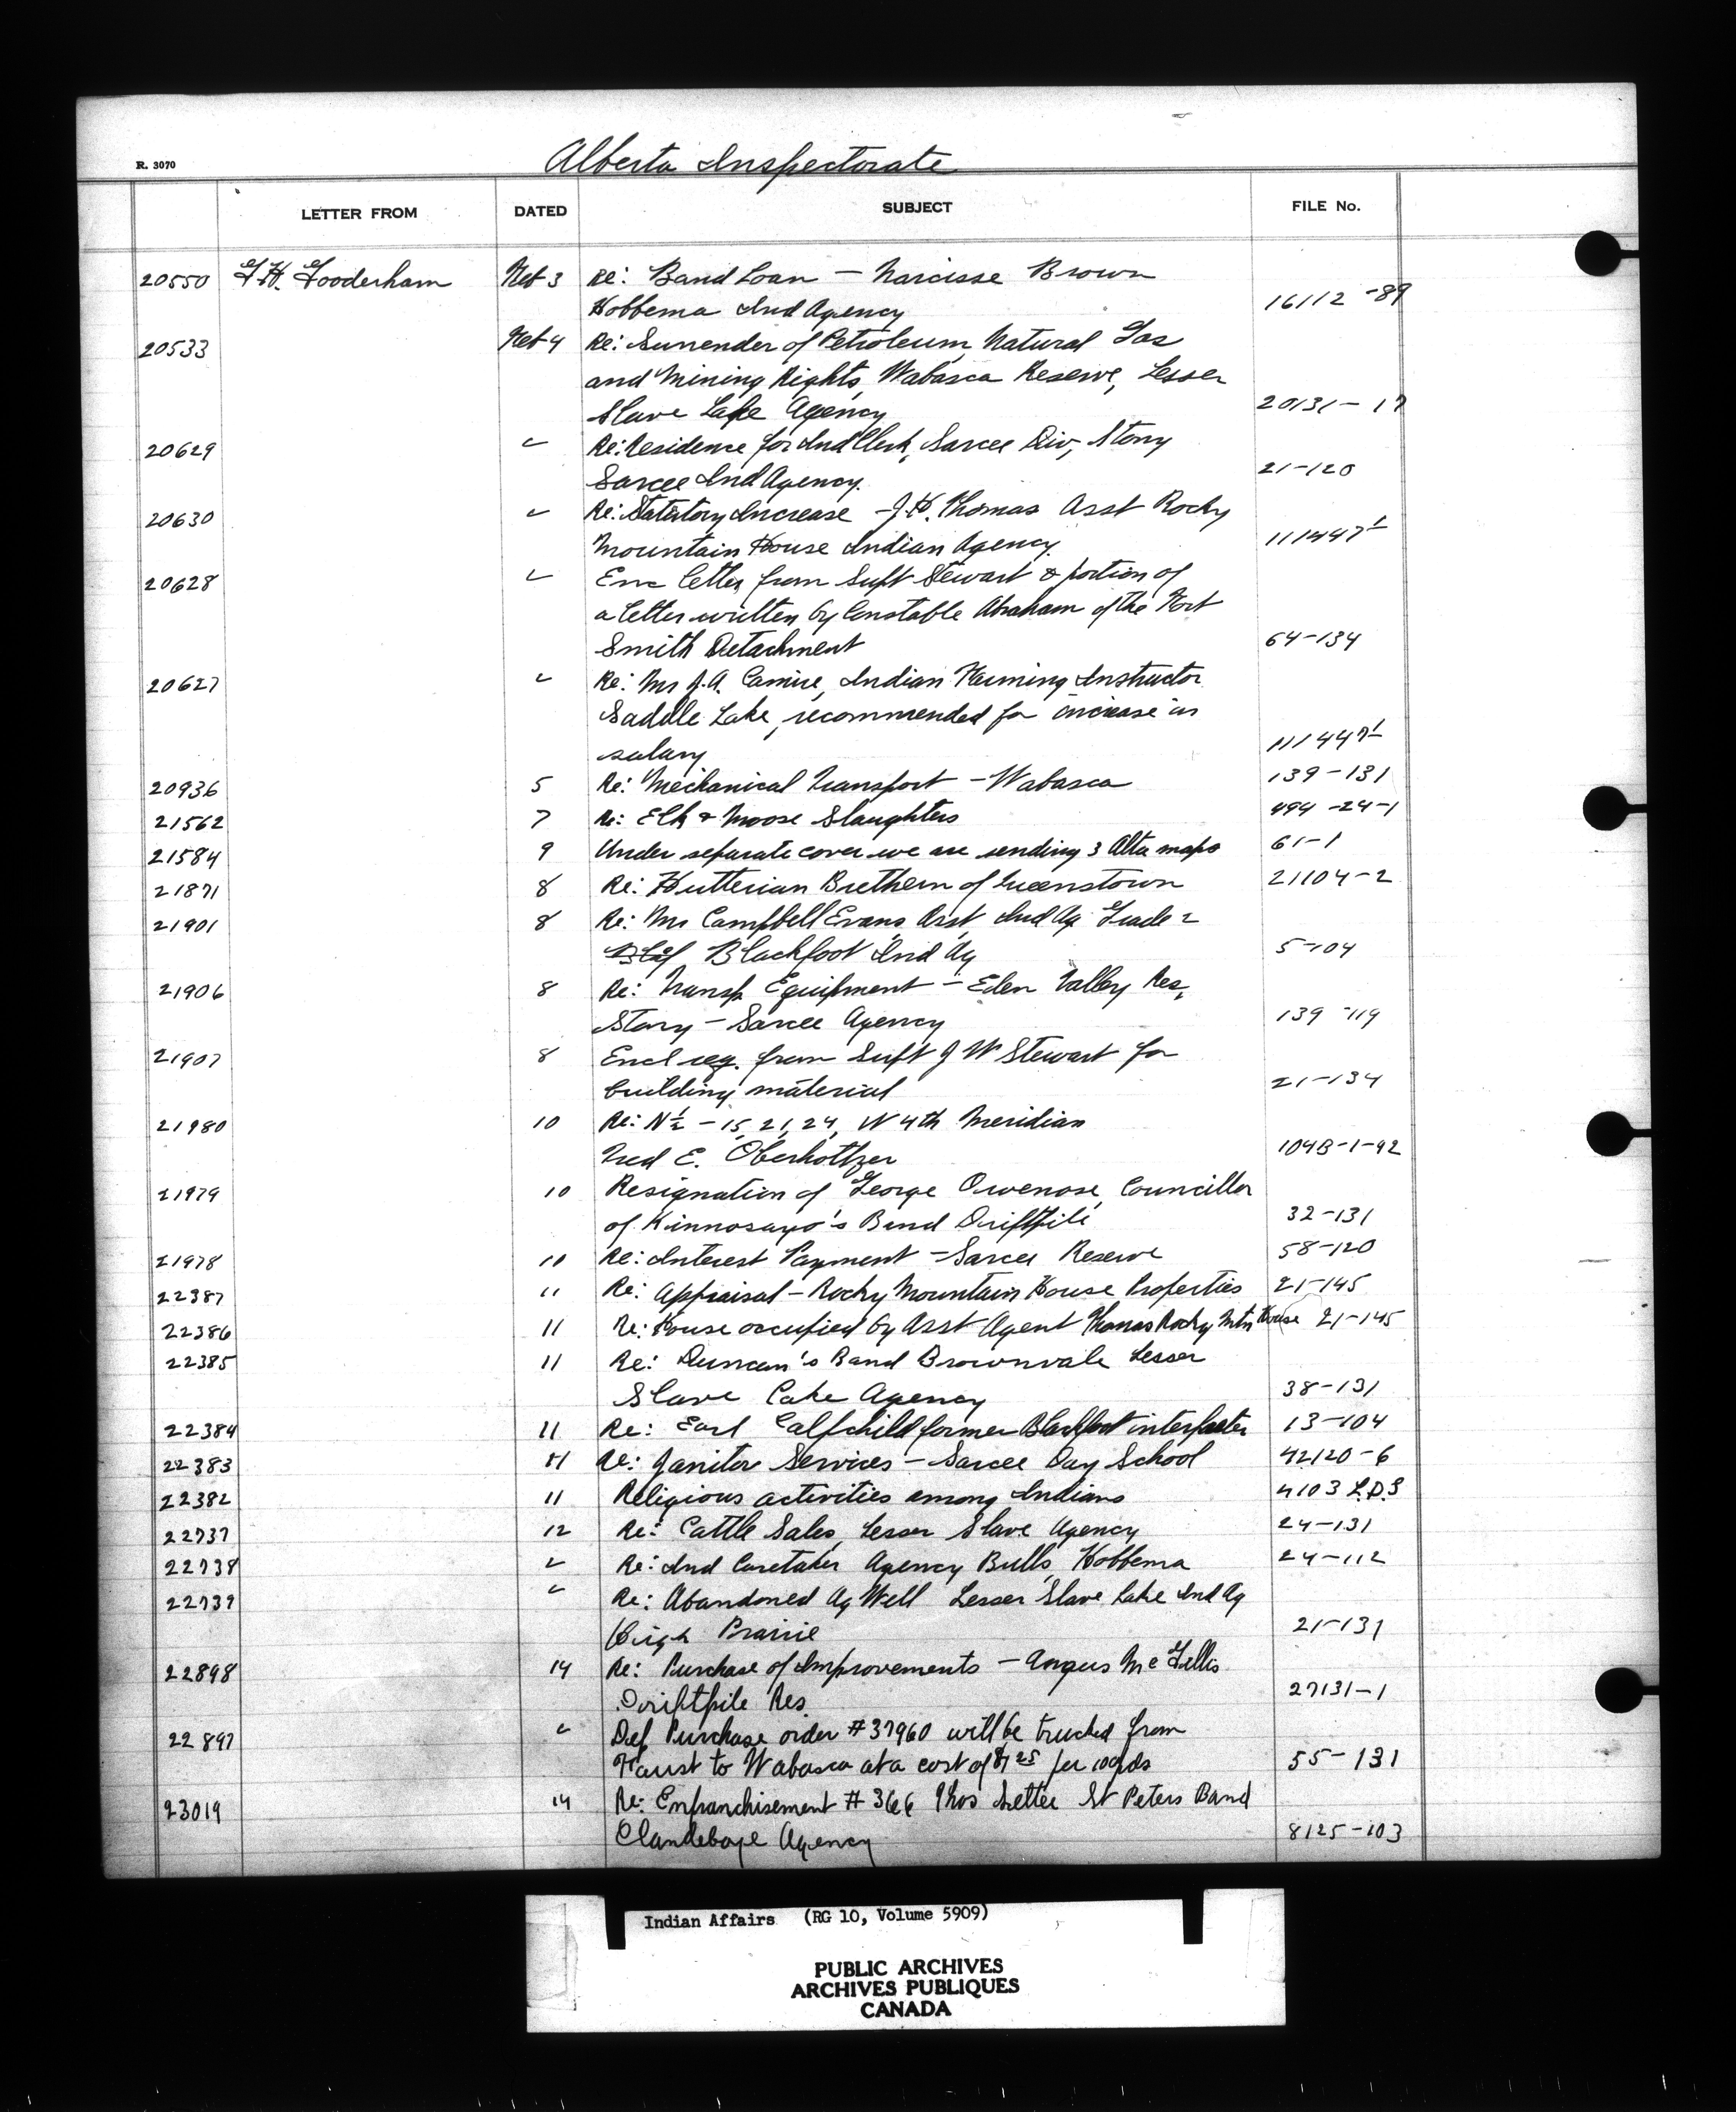 R. 3070
Alberta Inspectorate
LETTER FROM DATED SUBJECT FILE No.
20550 G.H. Gooderham Feb 3 Re: Band Loan — Narcisse Brown
Hobbema Ind Agency 16112-89
20533 Feb 4 Re: Surrender of Petroleum, Natural Gas
and Mining Rights, Wabasca Reserve, Lesser
Slave Lake Agency 20131-17
20629 " Re: Residence for Ind Clerk, Sarcee Div, Stony
Sarcee Ind Agency. 21-120
20630 " Re: Statutory Increase - J.H. Thomas Asst Rocky
Mountain House Indian Agency.
20628 " Enc letter from Supt Stewart & portion of
a letter written by Constable Abraham of the Fort
Smith Detachment 64-134
20627 " Re: Mr J.A. Camire, Indian Farming Instructor
Saddle Lake, recommended for increase in
salary
20936 5 Re: Mechanical Transport — Wabasca 139-131
21562 7 Re: Elk & Moose Slaughters 494-24-1
21584 9 Under separate cover we are sending 3 Alta maps 61-1
21871 8 Re: Hutterian Brethern of Queenstown 21104-2
21901 8 Re: Mr Campbell Evans, Asst, Ind Ag Grade 2
Blackfoot Ind Ag 5-104
21906 8 Re: Transp. Equipment — Eden Valley Res,
Stony — Sarcee Agency 139-119
21907 8 Encl req. from Supt J W Stewart for
building material 21-134
21980 10 Re: N½ - 15, 21, 24, W 4th Meridian
Fred E. Oberholtzer 104B-1-92
21979 10 Resignation of George Owenose, Councillor
of Kinnosayo's Band Driftpile 32-131
21978 10 Re: Interest Payment — Sarcee Reserve 58-120
22387 11 Re: Appraisal — Rocky Mountain House Properties 21-145
22386 11 Re: House occupied by Asst Agent Thomas Rocky Mtn House 21-145
22385 11 Re: Duncan's Band Brownvale Lesser
Slave Lake Agency 38-131
22384 11 Re: Earl Calfchild former Blackfoot interpreter 13-104
22383 11 Re: Janitor Services — Sarcee Day School 42120-6
22382 11 Religious activities among Indians 4103 L.D.S
22737 12 Re: Cattle Sales, Lesser Slave Agency 24-131
22738 " Re: Ind Caretaker Agency Bulls, Hobbema 24-112
22739 " Re: Abandoned Ag Well Lesser Slave Lake Ind Ag
High Prairie 21-131
22898 14 Re: Purchase of Improvements — Angus McGillis
Driftpile Res. 27131-1
22897 " Def Purchase order #37960 will be trucked from
Faust to Wabasca at a cost of per 100 lbs 55-131
23019 14 Re: Enfranchisement #366 Thos Settee St Peters Band
Clandeboye Agency 8125-103
Indian Affairs (RG 10, Volume 5909)
PUBLIC ARCHIVES
ARCHIVES PUBLIQUES
CANADA